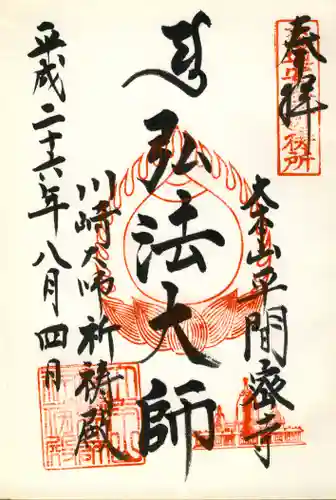 奉拝
大本山平間密寺
弘法大師
川崎大師祈祷殿
平成二十六年八月四日